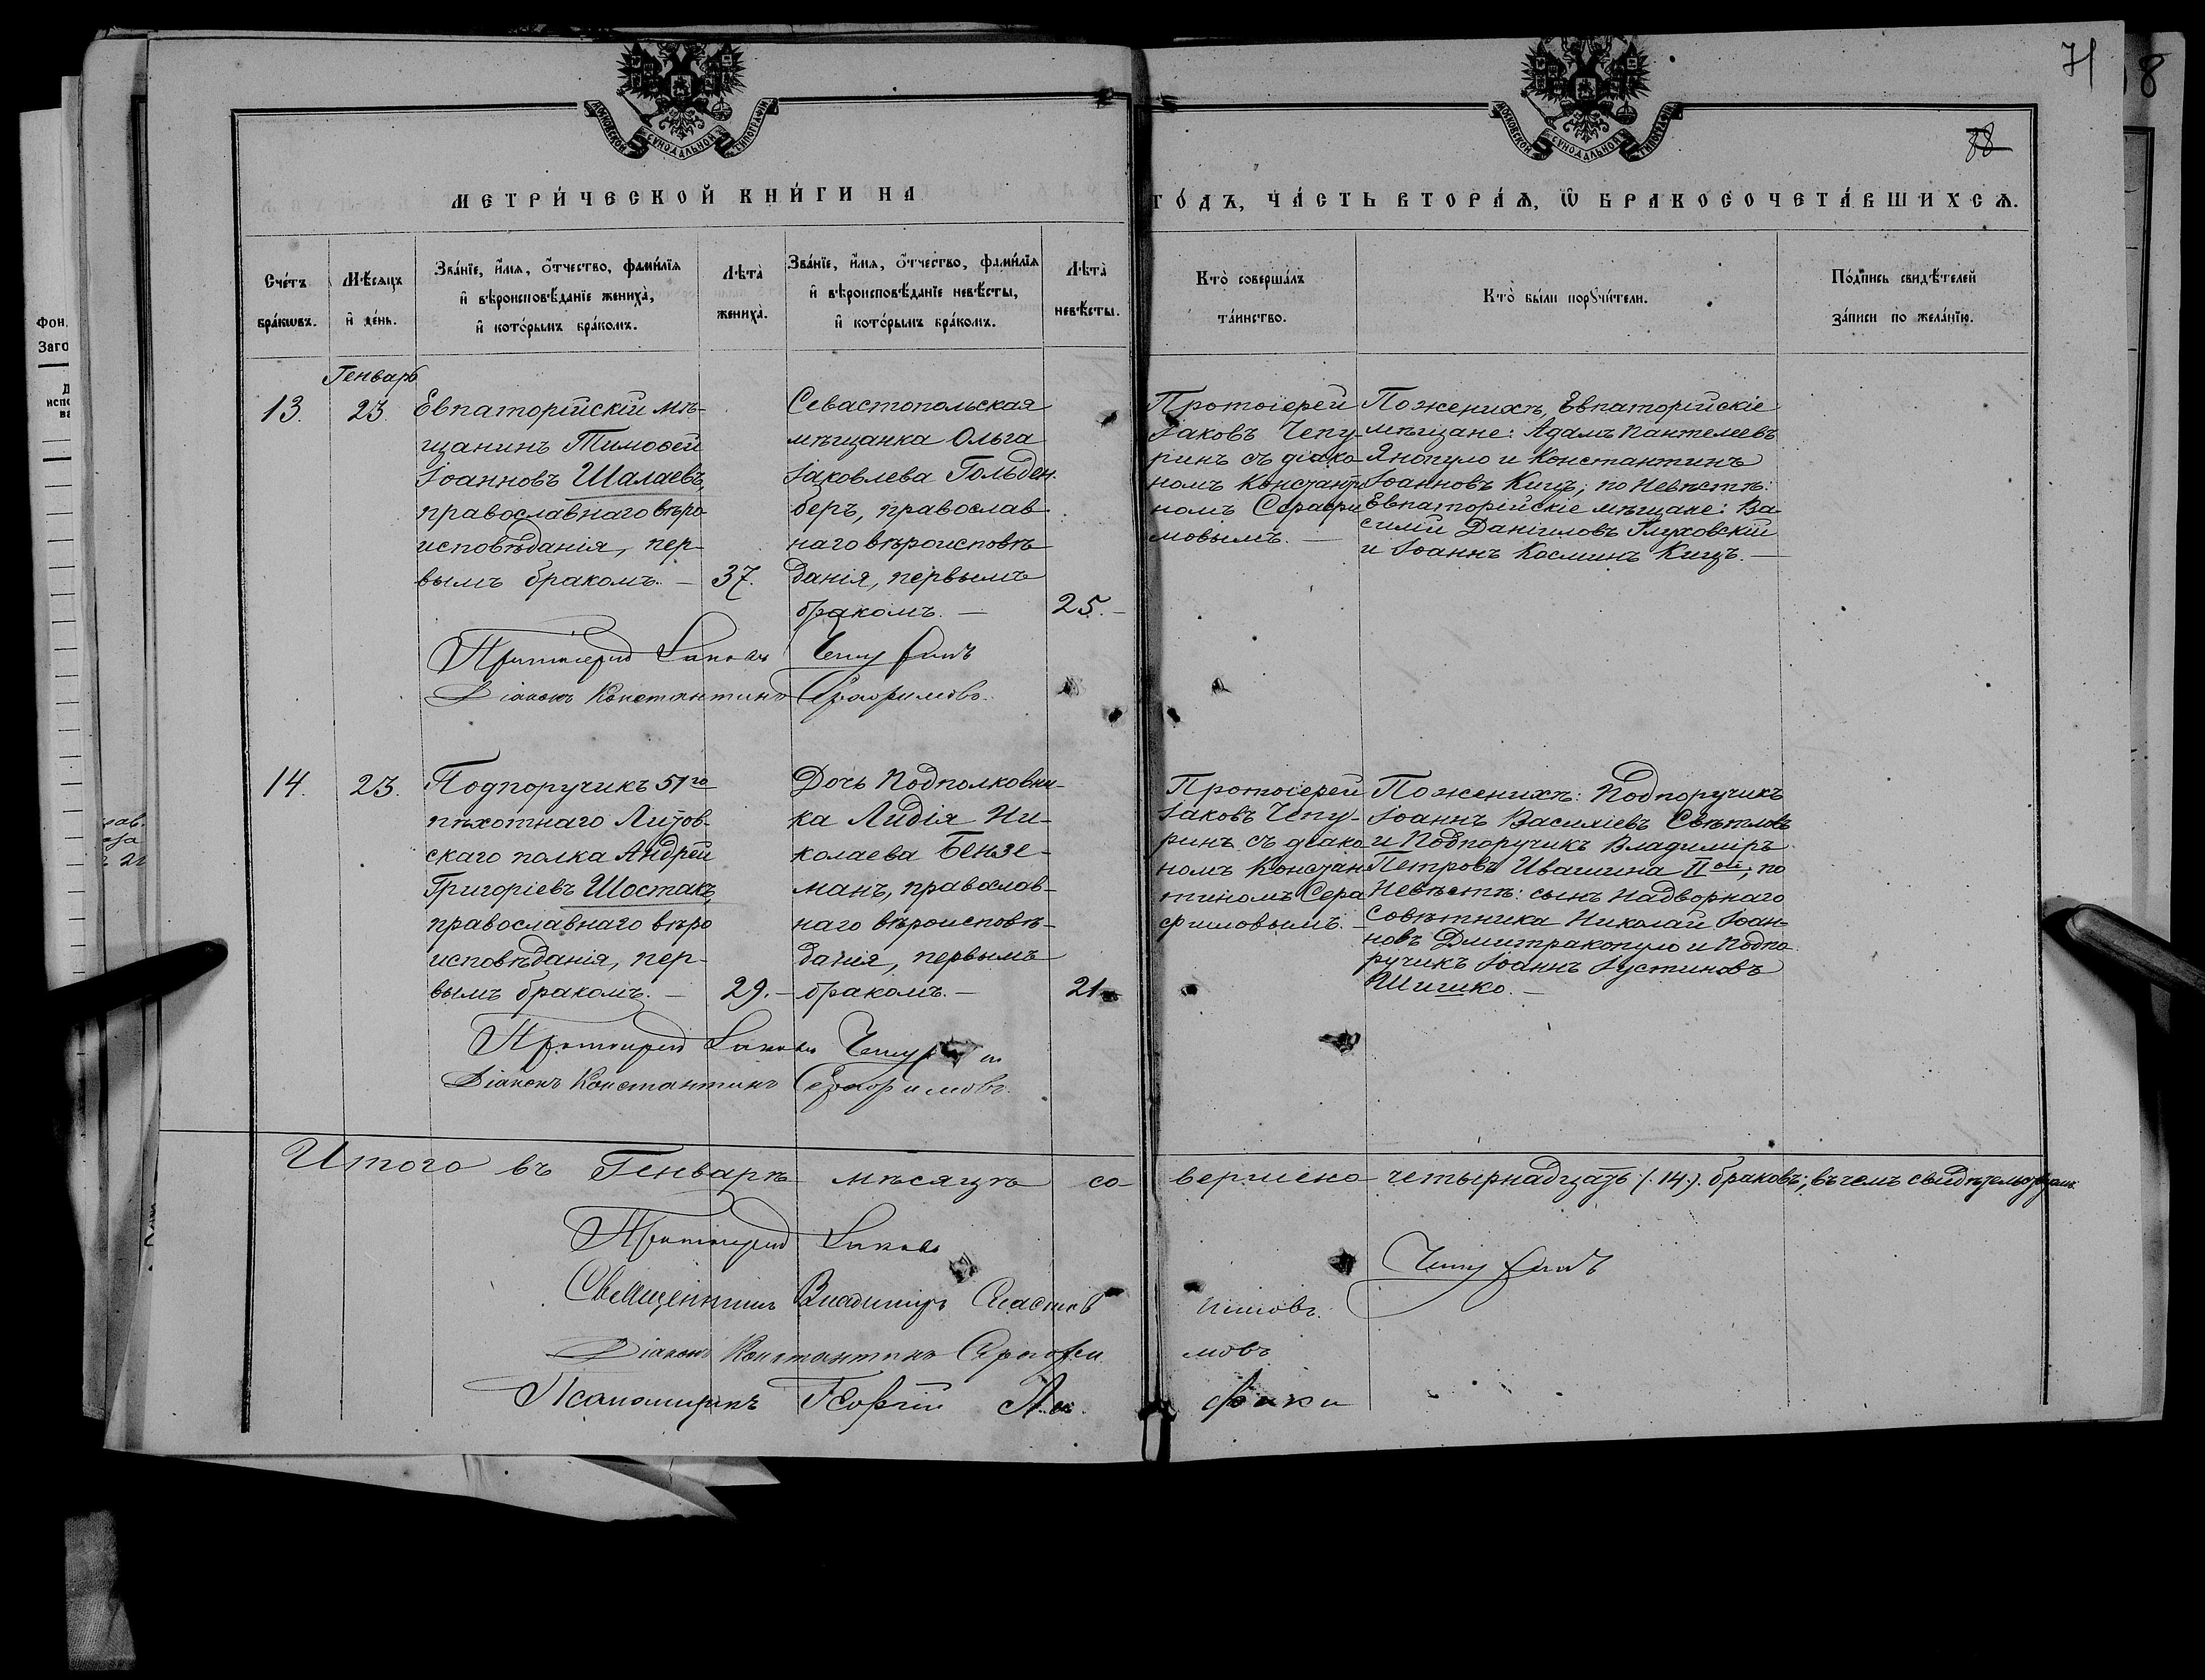 МОСКОВСКОЙ СѴНОДАЛЬНОЙ ТИПОГРАФІИ
МОСКОВСКОЙ СѴНОДАЛЬНОЙ ТИПОГРАФІИ
71
8
88
МЕТРИ́ЧЕСКОЙ КНИ́ГИ НА
ГО́ДЪ, ЧА́СТЬ ВТОРА́Ѧ, Ѿ БРАКОСОЧЕТА́ВШИХСѦ.
Сче́тъ
бра́кѡвъ.
Мѣ́сѧцъ
и҆ де́нь.
Зва́нїе, и҆́мѧ, ѻ҆́тчество, фамѝлїѧ
и҆ вѣроисповѣ́данїе жениха̀,
и҆ кото́рымъ бра́комъ.
Лѣта̀
жениха̀.
Зва́нїе, и҆́мѧ, ѻ҆́тчество, фамѝлїѧ
и҆ вѣроисповѣ́данїе невѣ́сты,
и҆ кото́рымъ бра́комъ.
Лѣта̀
невѣ́сты.
Кто̀ соверша́лъ
та́инство.
Кто̀ бы́ли порꙋчи́тели.
По́дпись свидѣ́телей
за́писи по жела́нїю.
Фон.
Заго
Генварь
13.
23.
Евпаторійскій мѣ-
щанинъ Тимоѳей
Іоанновъ Шалаевъ,
православнаго вѣро
исповѣданія, пер-
вымъ бракомъ. —
37.
Севастопольская
мѣщанка Ольга
Іаковлева Гольден-
беръ, православ
наго вѣроисповѣ
данія, первымъ
бракомъ. —
25. —
Протоіерей
Іаковъ Чепу-
ринъ съ діако
номъ Константи
номъ Серафи
мовымъ. —
По женихѣ, Евпаторійскіе
мѣщане: Адамъ Пантелеевъ
Янопуло и Константинъ
Іоанновъ Кицъ; по Невѣстѣ:
Евпаторійскіе мѣщане: Ва-
силій Даніиловъ Глуховскій
и Іоаннъ Косминъ Кицъ. —
Протоіерей Іаковъ Чепуринъ
Діаконъ Константинъ Серафимовъ.
14.
23.
Подпоручикъ 51го
пѣхотнаго Литов-
скаго полка Андрей
Григоріевъ Шостакъ,
православнаго вѣро
исповѣданія, пер-
вымъ бракомъ. —
29. —
Дочь Подполковни-
ка Лидія Ни-
колаева Бензе-
манъ, православ-
наго вѣроисповѣ-
данія, первымъ
бракомъ. —
21
Протоіерей
Іаковъ Чепу-
ринъ съ діако
номъ Констан
тиномъ Сера
фимовымъ. —
По женихѣ: Подпоручикъ
Іоаннъ Василіевъ Свѣтловъ
и Подпоручикъ Владиміръ
Петровъ Ивашина IIой; по
Невѣстѣ: сынъ Надворнаго
Совѣтника Николай Іоан-
новъ Дмитракопуло и Подпо
ручикъ Іоаннъ Іустиновъ
Шишко. —
Протоіерей Іаковъ Чепуринъ
Діаконъ Константинъ Серафимовъ.
Итого въ Генварѣ мѣсяцѣ совершено четырнадцать (14) браковъ; въ чемъ свидѣтельствуемъ
Протоіерей Іаковъ Чепуринъ
Священникъ Владиміръ
Діаконъ Константинъ Серафимовъ
Псаломщикъ Георгій